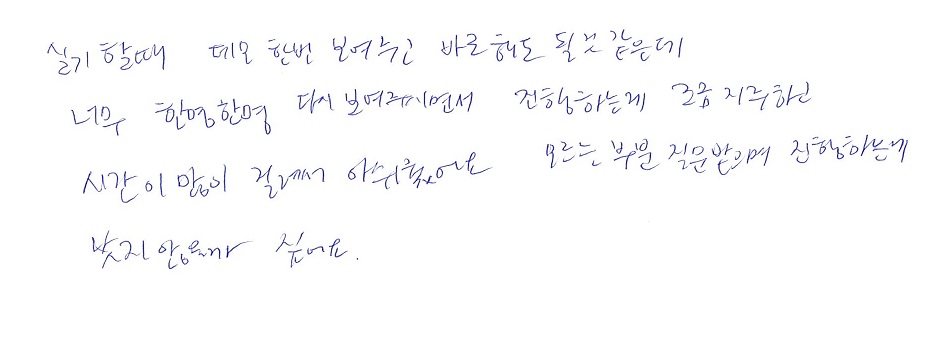 실기 할때 데모 한번 보여주고 바로해도 될것 같은데
너무 한명한명 다시 보여주시면서 진행하는게 조금 지루하고
시간이 많이 걸려서 아쉬웠어요 모르는 부분 질문받으며 진행하는게
낫지 않을까 싶어요.